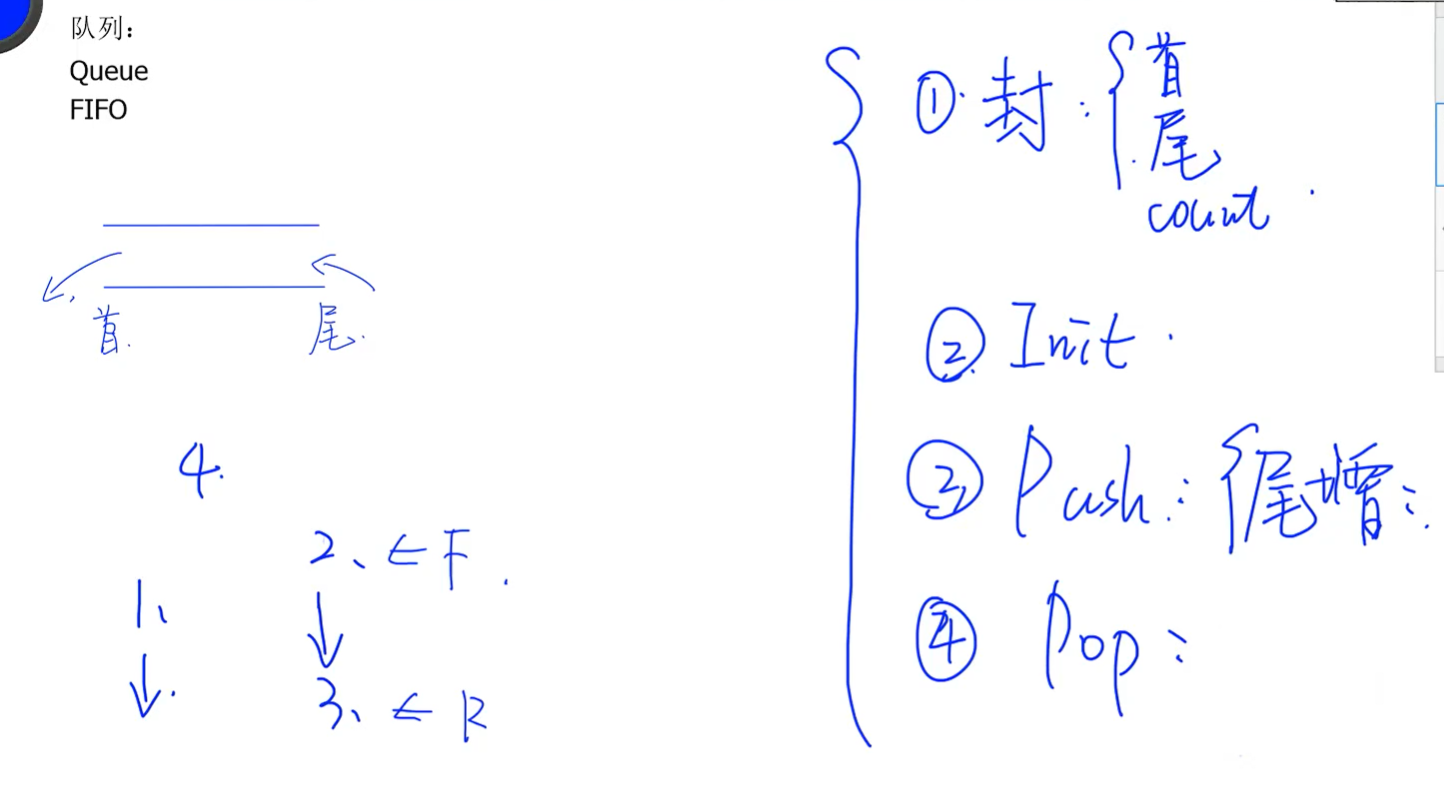 队列：
Queue
FIFO
首.
尾.
4.
2、← F.
1、
↓.
↓
3、← R
①. 封：{首
尾
count.
② Init.
③ Push：{尾增；
④ Pop：